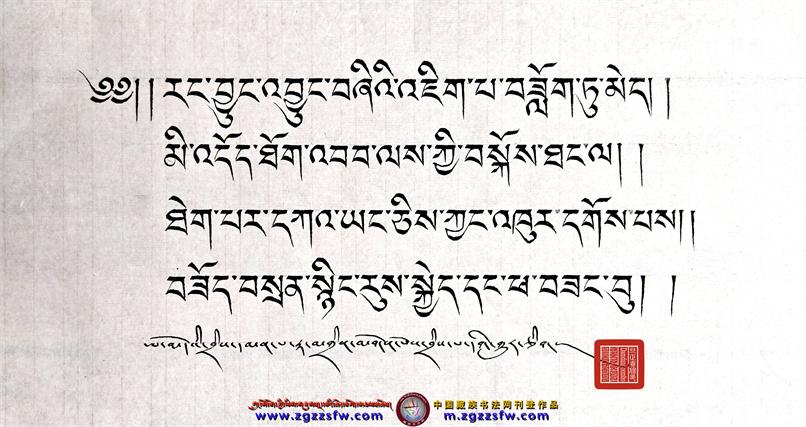 ༄༅།། རང་བྱུང་འབྱུང་བཞིའི་འཇིག་པ་བཟློག་ཏུ་མེད། །
མི་འདོད་ཐོག་འབབ་ལས་ཀྱི་བསྐོས་ཐང་ལ། །
ཐེག་པར་དཀའ་ཡང་ཅིས་ཀྱང་འཁུར་དགོས་པས། །
བཟོད་བསྲན་སྙིང་རུས་སྐྱེད་དང་ཕ་བཟང་བུ། །
www.zgzzsfw.com
中国藏族书法网刊登作品
m.zgzzsfw.com